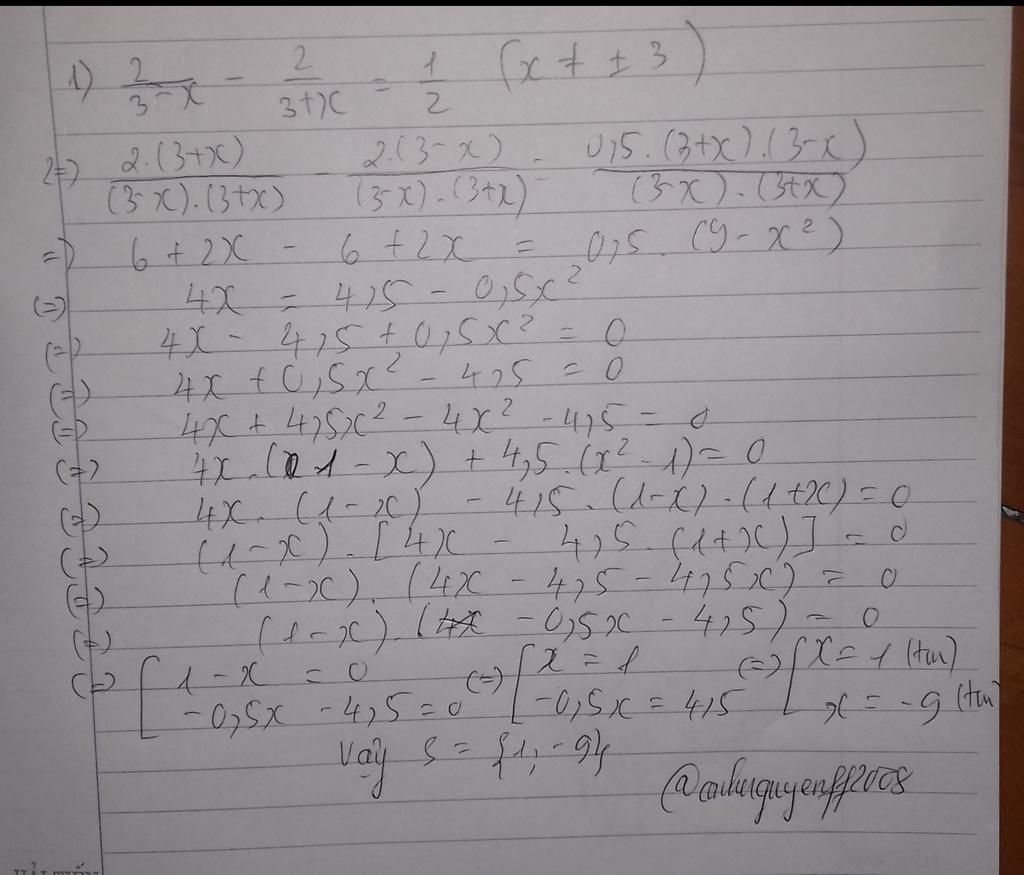 1) 2/(3-x) - 2/(3+x) = 1/2 (x ≠ ± 3)
2=) 2.(3+x)/((3-x).(3+x)) - 2.(3-x)/((3-x).(3+x)) = 0,5.(3+x).(3-x)/((3-x).(3+x))
=) 6 + 2x - 6 + 2x = 0,5. (9 - x²)
(=) 4x = 4,5 - 0,5x²
(=) 4x - 4,5 + 0,5x² = 0
(=) 4x + 0,5x² - 4,5 = 0
(=) 4x + 4,5x² - 4x² - 4,5 = 0
(=) 4x.(1 - x) + 4,5.(x² - 1) = 0
(=) 4x. (1 - x) - 4,5. (1-x).(1+x) = 0
(=) (1-x). [4x - 4,5.(1+x)] = 0
(=) (1-x). (4x - 4,5 - 4,5x) = 0
(=) (1-x).( -0,5x - 4,5) = 0
(=) [ 1 - x = 0 (=) [ x = 1 (=) [ x = 1 (tm)
-0,5x - 4,5 = 0 -0,5x = 4,5 x = -9 (tm
Vậy S = {1; -9}